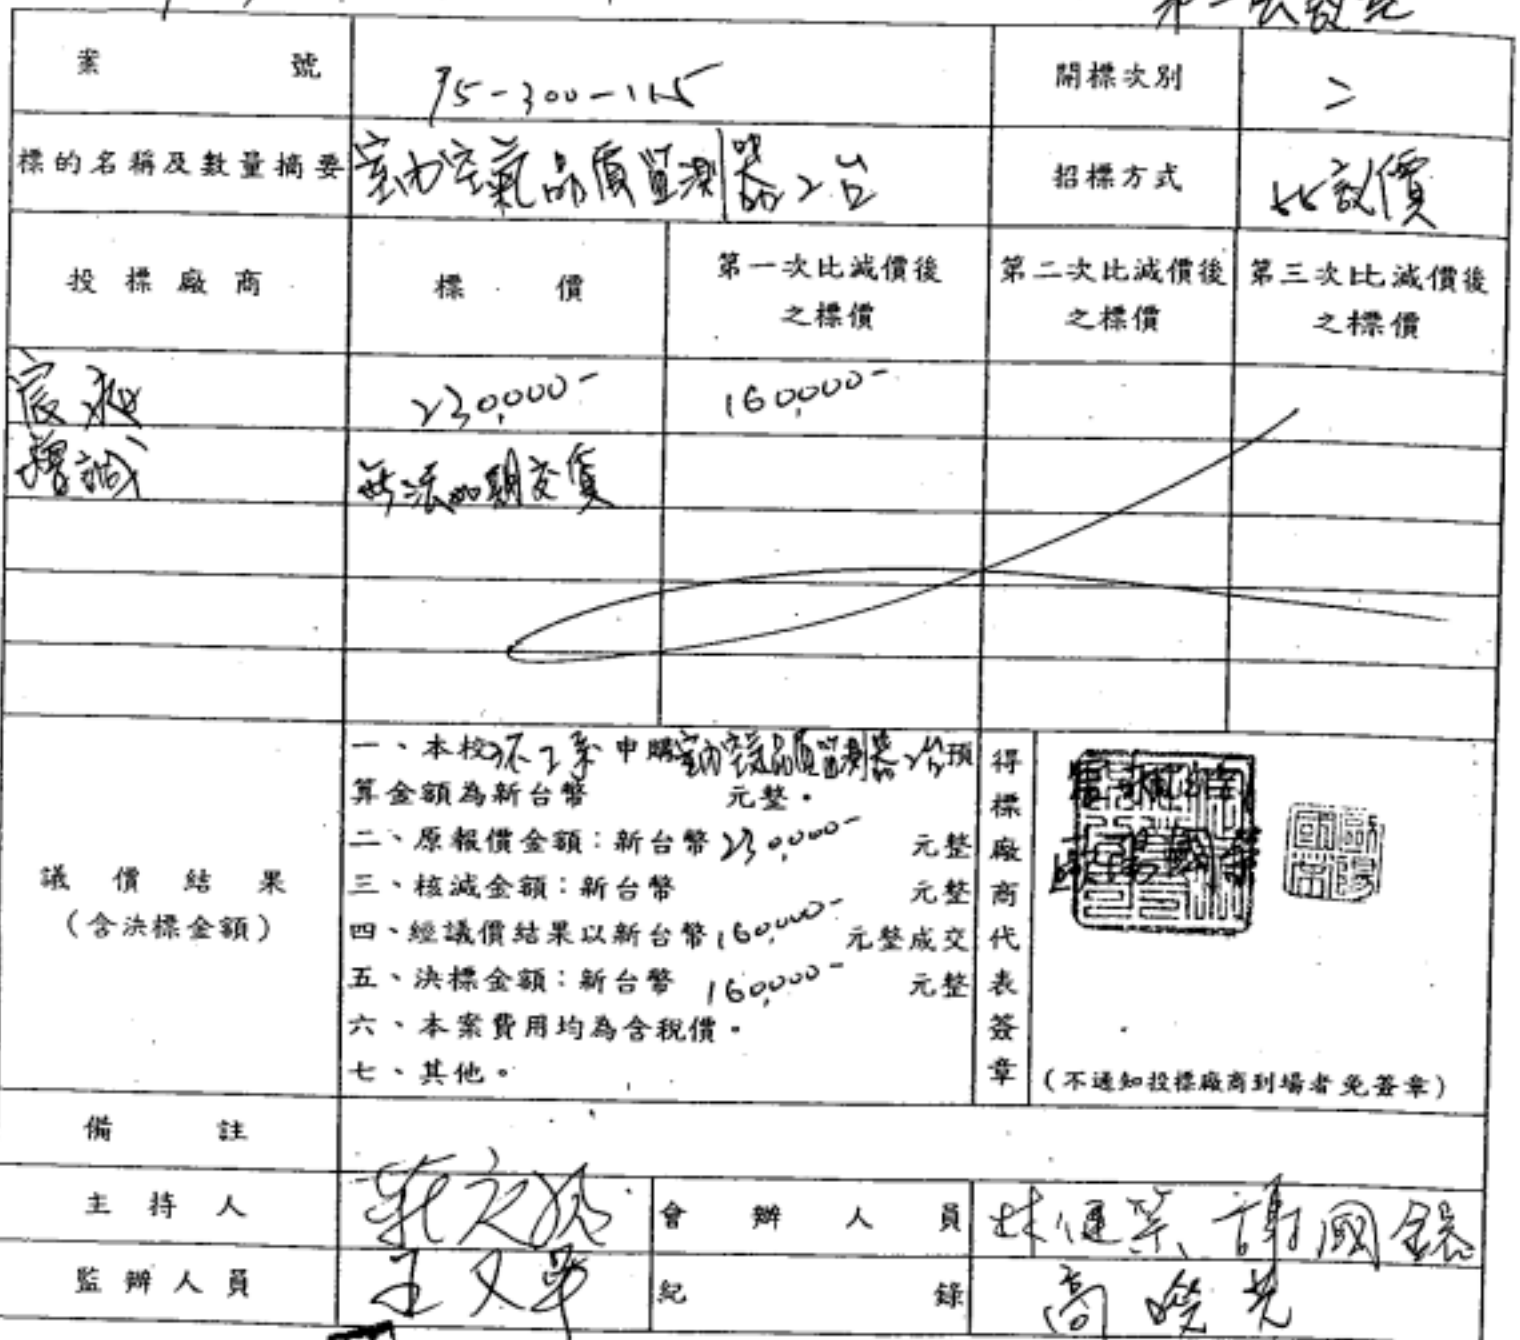 案 號 95-300-115 開標次別 二
標的名稱及數量摘要 室內空氣品質監測器2台 招標方式 比議價
投標廠商 標價 第一次比減價後之標價 第二次比減價後之標價 第三次比減價後之標價
230,000- 160,000-
增誠 無法如期交貨
議價結果
(含決標金額)
一、本校環工系申購室內空氣品質監測器2台預
算金額為新台幣 元整。
二、原報價金額：新台幣230,000- 元整
三、核減金額：新台幣 元整
四、經議價結果以新台幣160,000-元整成交
五、決標金額：新台幣 160,000- 元整
六、本案費用均為含稅價。
七、其他。
得標廠商代表簽章
(不通知投標廠商到場者免簽章)
備 註
主持人 會辦人員 林健榮 謝國鎔
監辦人員 王文華 紀錄 高曉芸